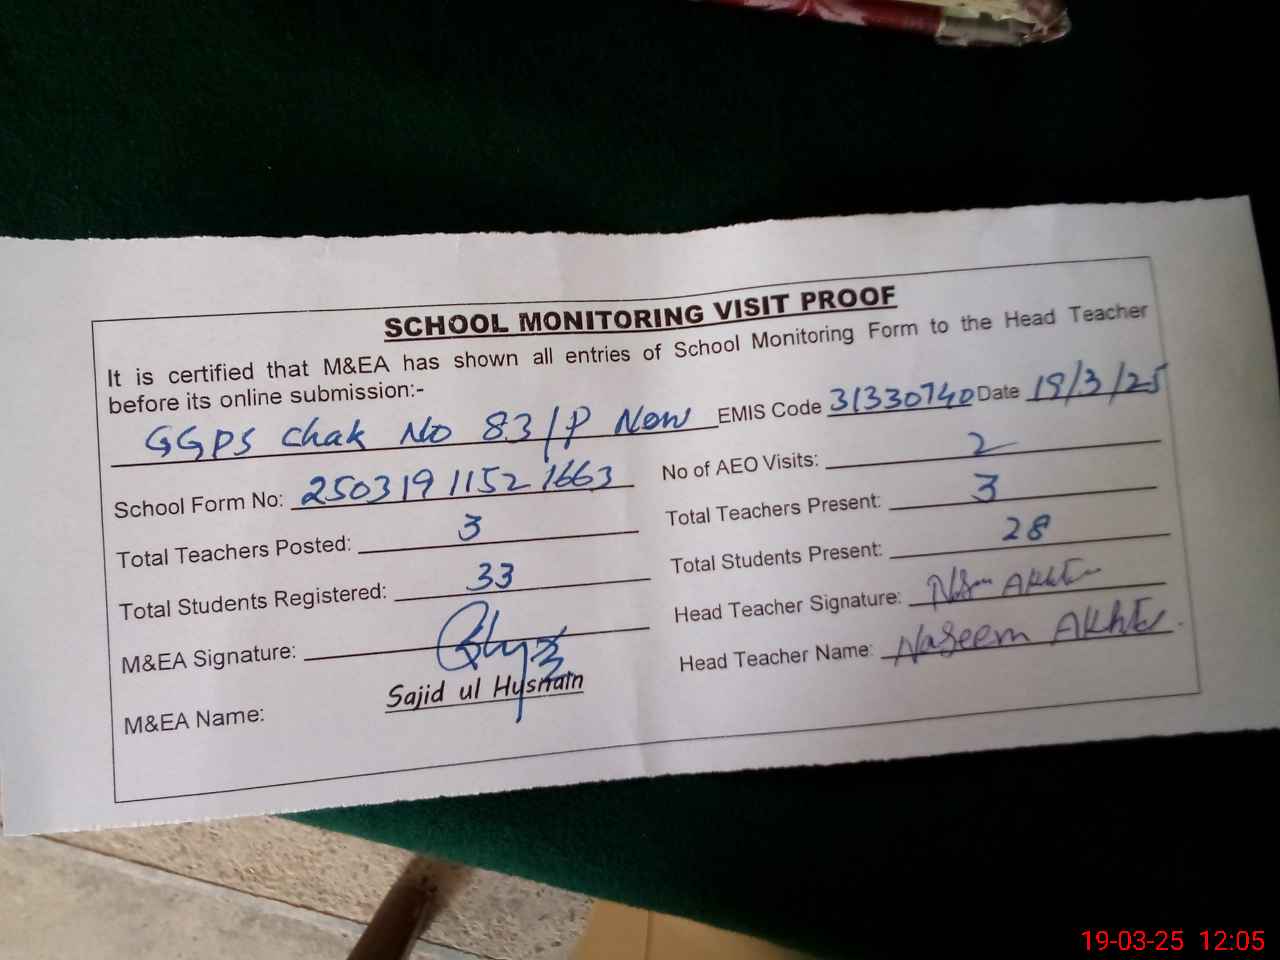 SCHOOL MONITORING VISIT PROOF
It is certified that M&EA has shown all entries of School Monitoring Form to the Head Teacher
before its online submission:-
GGPS Chak No 83/P New EMIS Code 31330740 Date 19/3/25
School Form No: 250319 1152 1663 No of AEO Visits: 2
Total Teachers Posted: 3 Total Teachers Present: 3
Total Students Registered: 33 Total Students Present: 28
M&EA Signature: Head Teacher Signature: Akhtr
M&EA Name: Sajid ul Husnain Head Teacher Name: Naseem Akhtr
19-03-25 12:05